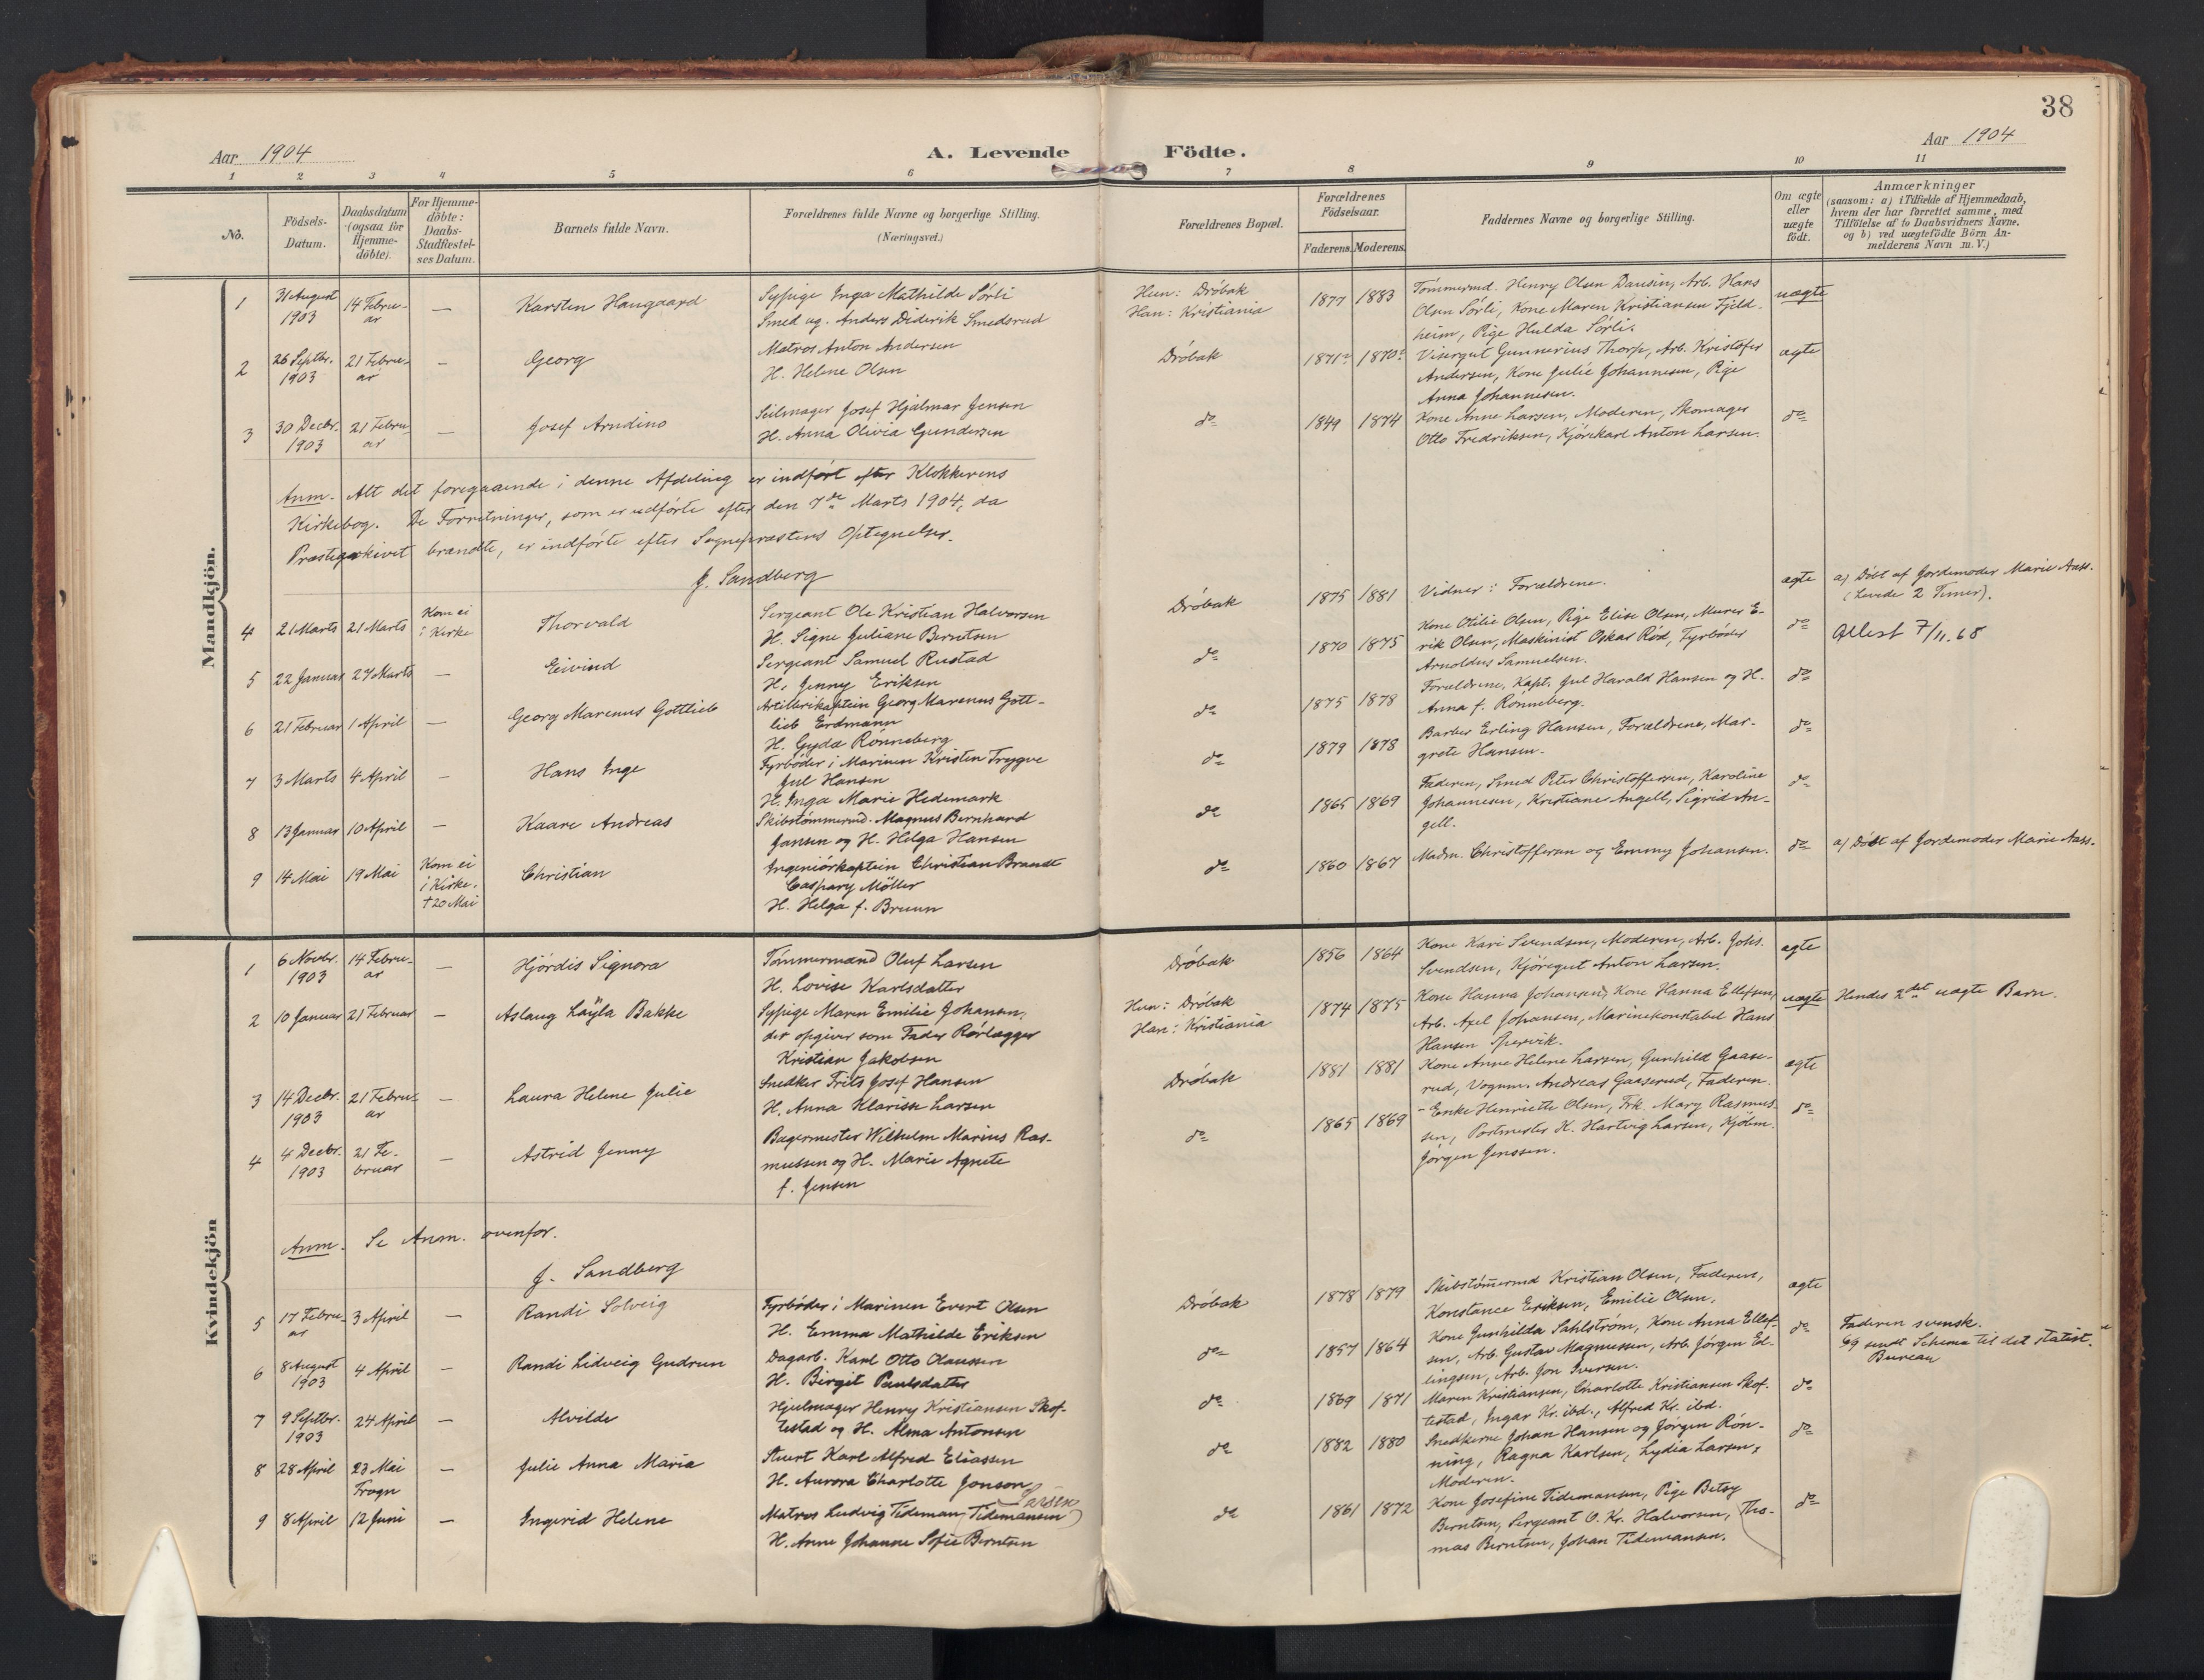 38
Aar 1904
A. Levende Födte.
Aar 1904
1 2 3 4 5 6 7 8 9 10 11
No.
Födsels-Datum.
Daabsdatum (ogsaa for Hjemme-döbte).
For Hjemme-döbte: Daabs-Stadfæstel-ses Datum.
Barnets fulde Navn.
Forældrenes fulde Navne og borgerlige Stilling.
(Næringsvei.)
Forældrenes Bopæl.
Forældrenes Födselsaar.
Faderens. Moderens.
Faddernes Navne og borgerlige Stilling.
Om ægte eller uægte födt.
Anmærkninger
(saasom: a) i Tilfælde af Hjemmedaab, hvem der har forrettet samme, med Tilföielse af to Daabsvidners Navne. og b) ved uægtefödte Börn An-melderens Navn m. V.)
Mandkjön.
1 31 August 1903 14 Febru-ar — Karsten Haugaard
Sypige Inga Mathilde Sörli
Smed ug. Anders Diderik Smedsrud
Hun: Dröbak
Han: Kristiania
1877 1883
Tömmermd. Henry Olsen Dausin, Arb. Hans
Olsen Sörli, Kone Maren Kristiansen Fjeld-
heim, Pige Hulda Sörli.
uægte
2 26 Septbr. 1903 21 Febru-ar — Georg
Matros Anton Andersen
H. Helene Olsen
Dröbak 1871? 1870?
Visergut Gunnerius Thorp, Arb. Kristofer
Andersen, Kone Julie Johannesen, Pige
Anna Johannesen.
ægte
3 30 Decbr. 1903 21 Febru-ar — Josef Arndino
Seilmager Josef Hjalmar Jensen
H. Anna Olivia Gundersen
do 1849 1874
Kone Anne Larsen, Moderen, Skomager
Otto Fredriksen, Kjörekarl Anton Larsen.
do
Anm. Alt det foregaaende i denne Afdeling er indfört efter Klokkerens
Kirkebog. De Forretninger, som er udförte efter den 7de Marts 1904, da
Præstearkivet brændte, er indförte efter Sognepræstens Optegnelser.
J. Sandberg
4 21 Marts 21 Marts Kom ei i Kirke Thorvald
Sergeant Ole Kristian Halvorsen
H. Signe Juliane Berntsen
Dröbak 1875 1881
Vidner: Forældrene.
ægte
a) Döbt af Jordemoder Marie Aass.
(Levede 2 Timer).
5 22 Januar 27 Marts — Eivind
Sergeant Samuel Rustad
H. Jenny Eriksen
do 1870 1875
Kone Otilie Olsen, Pige Elise Olsen, Murer E-
rik Olsen, Maskinist Oskar Röd, Fyrböder
Arnoldus Samuelsen.
do
Attest 7/11.68
6 21 Februar 1 April — Georg Marenus Gottlieb
Artillerikaptein Georg Marenus Gott-
lieb Erdmann
H. Gyda Rönneberg
do 1875 1878
Forældrene, Kapt. Jul Harald Hansen og H.
Anna f. Rönneberg.
do
7 3 Marts 4 April — Hans Inge
Fyrböder i Marinen Kristen Trygve
Jul Hansen
H. Inga Marie Hedemark
do 1879 1878
Barber Erling Hansen, Forældrene, Mar-
grete Hansen.
do
8 13 Januar 10 April — Kaare Andreas
Skibstömmermd. Magnus Bernhard
Jansen og H. Helga Hansen
do 1865 1869
Faderen, Smed Peter Christoffersen, Karoline
Johannesen, Kristiane Angell, Sigrid An-
gell.
do
9 14 Mai 19 Mai Kom ei i Kirke. † 20 Mai Christian
Ingeniörkaptein Christian Brandt
Caspary Möller
H. Helga f. Bruun
do 1860 1867
Madm. Christoffersen og Emmy Johansen.
do
a) Döbt af Jordemoder Marie Aass.
Kvindekjön
1 6 Novbr. 1903 14 Febru-ar — Hjördis Signora
Tömmermand Oluf Larsen
H. Lovise Karlsdatter
Dröbak 1856 1864
Kone Kari Svendsen, Moderen, Arb. Johs.
Svendsen, Kjöregut Anton Larsen.
ægte
2 10 Januar 21 Februar — Aslaug Layla Bakke
Sypige Maren Emilie Johansen,
der opgiver som Fader Rörlægger
Kristian Jakobsen
Hun: Dröbak
Han: Kristiania
1874 1875
Kone Hanna Johansen, Kone Hanna Ellefsen,
Arb. Axel Johansen, Marinekonstabel Hans
Hansen Spervik.
uægte
Hendes 2det uægte Barn.
3 14 Decbr. 1903 21 Febru-ar — Laura Helene Julie
Snedker Frits Josef Hansen
H. Anna Klarisse Larsen
Dröbak 1881 1881
Kone Anne Helene Larsen, Gunhild Gaase-
rud, Vognm. Andreas Gaaserud, Faderen.
ægte
4 4 Decbr. 1903 21 Fe-bruar — Astrid Jenny
Bagermester Wilhelm Marius Ras-
mussen og H. Marie Agnete
f. Jensen
do 1865 1869
Enke Henriette Olsen, Frk. Mary Rasmus-
sen, Postmester K. Hartvig Larsen, Kjöbm.
Jörgen Jenssen.
do
Anm. Se Anm. ovenfor.
J. Sandberg
5 17 Febru-ar 3 April — Randi Solveig
Fyrböder i Marinen Evert Olsen
H. Emma Mathilde Eriksen
Dröbak 1878 1879
Skibstömermd Kristian Olsen, Faderen,
Konstance Eriksen, Emilie Olsen.
ægte
6 8 August 1903 4 April — Randi Lidveig Gudrun
Dagarb. Karl Otto Olaussen
H. Birgit Paulsdatter
do 1857 1864
Kone Gunhilda Sahlström, Kone Anna Ellef-
sen, Arb. Gustav Magnussen, Arb. Jörgen Ed-
lingsen, Arb. Jon Iversen.
do
Faderen svensk.
sendt Schema til det statist.
Bureau
7 9 Septbr. 1903 24 April — Alvilde
Hjulmager Henry Kristiansen Skof-
testad og H. Alma Antonsen
do 1869 1871
Maren Kristiansen, Charlotte Kristiansen Skof-
testad, Ingar Kr. ibd., Alfred Kr. ibd.
do
8 28 April 23 Mai Frogn — Julie Anna Maria
Stuert Karl Alfred Eliassen
H. Aurora Charlotte Jonson
do 1882 1880
Snedkerne Johan Hansen og Jörgen Rön-
ning, Ragna Karlsen, Lydia Larsen,
Moderen.
do
9 8 April 12 Juni — Ingerid Helene
Larsen
Matros Ludvig Tideman (Tidemansen)
H. Anne Johanne Sofie Berntsen
do 1861 1872
Kone Josefine Tidemansen, Pige Betsy
Berntsen, Sergeant O. Kr. Halvorsen, Tho-
mas Berntsen, Johan Tidemansen.
do